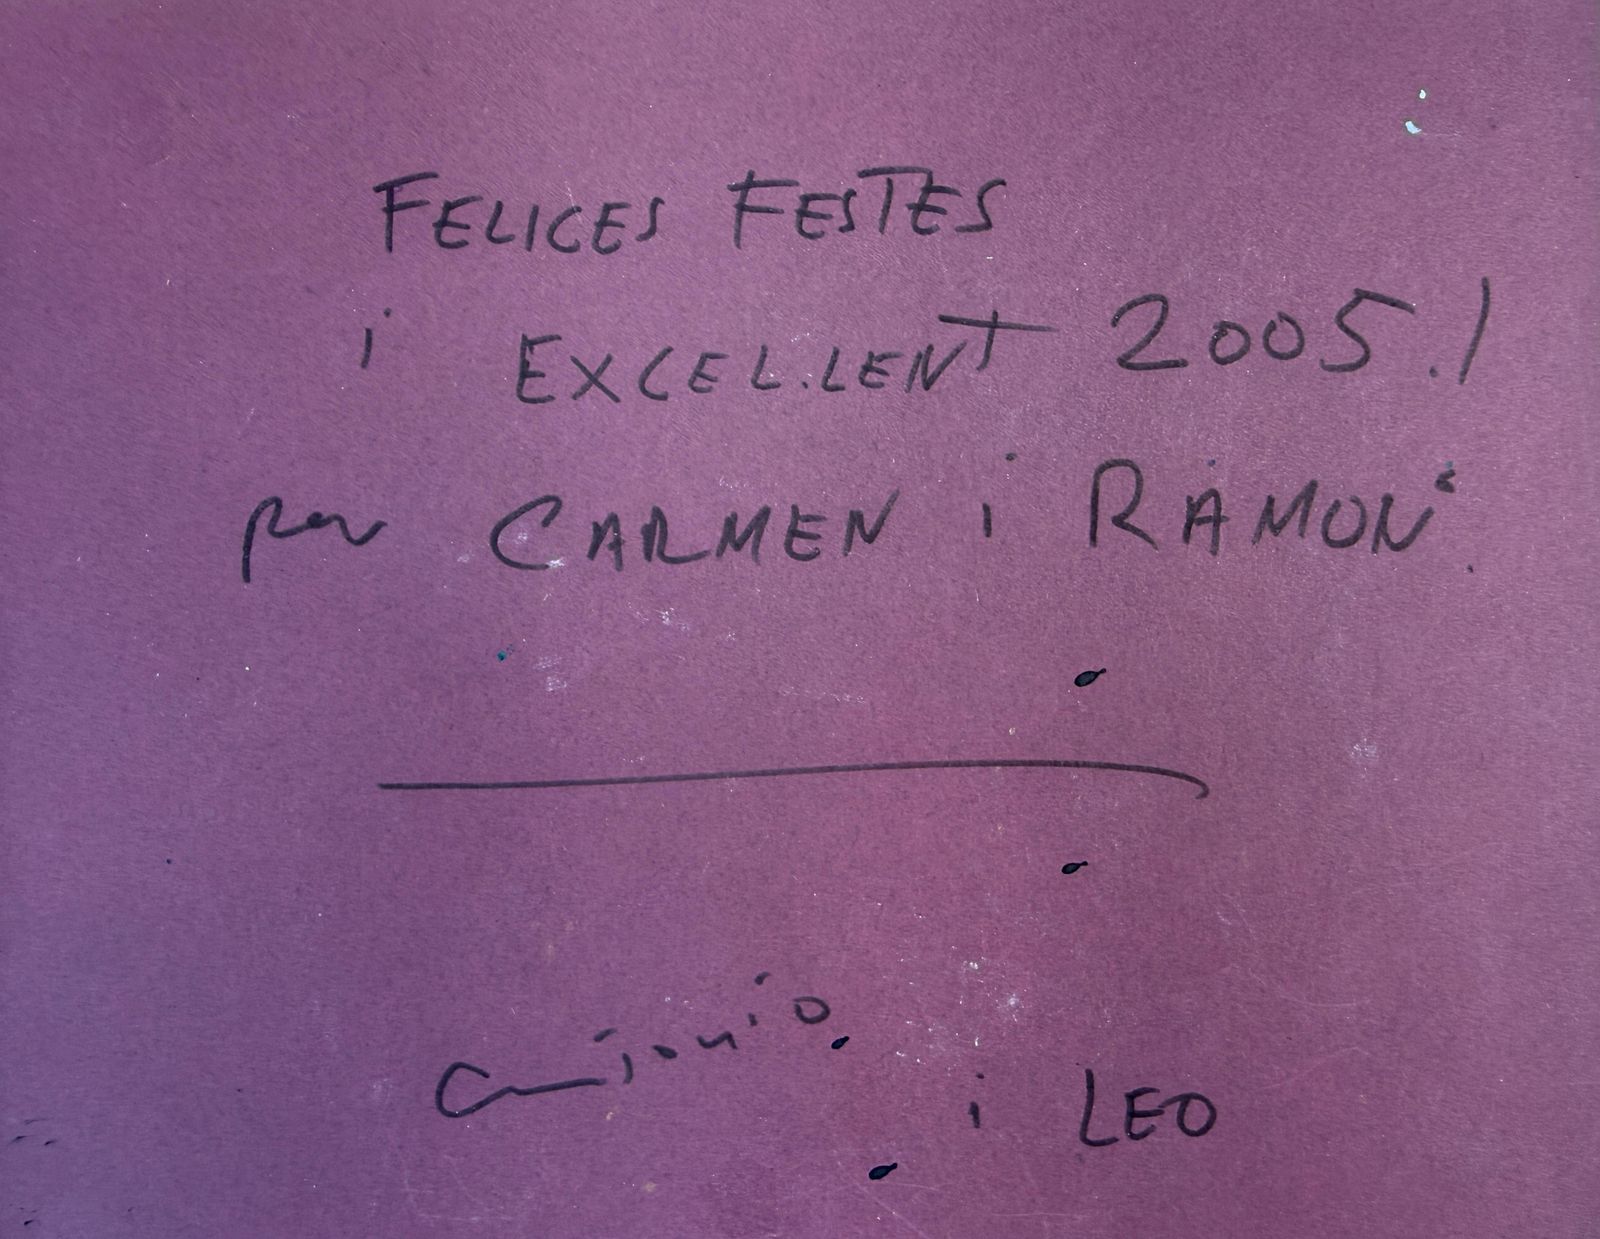 FELICES FESTES
i EXCEL.LENT 2005.!
per CARMEN i RAMON.
i LEO